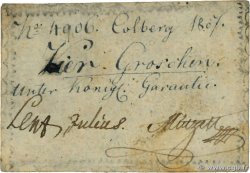 No 4906. Colberg 1807.
Vier Groschen
unter Königl. Garantie.
Lent Julius. Mützell